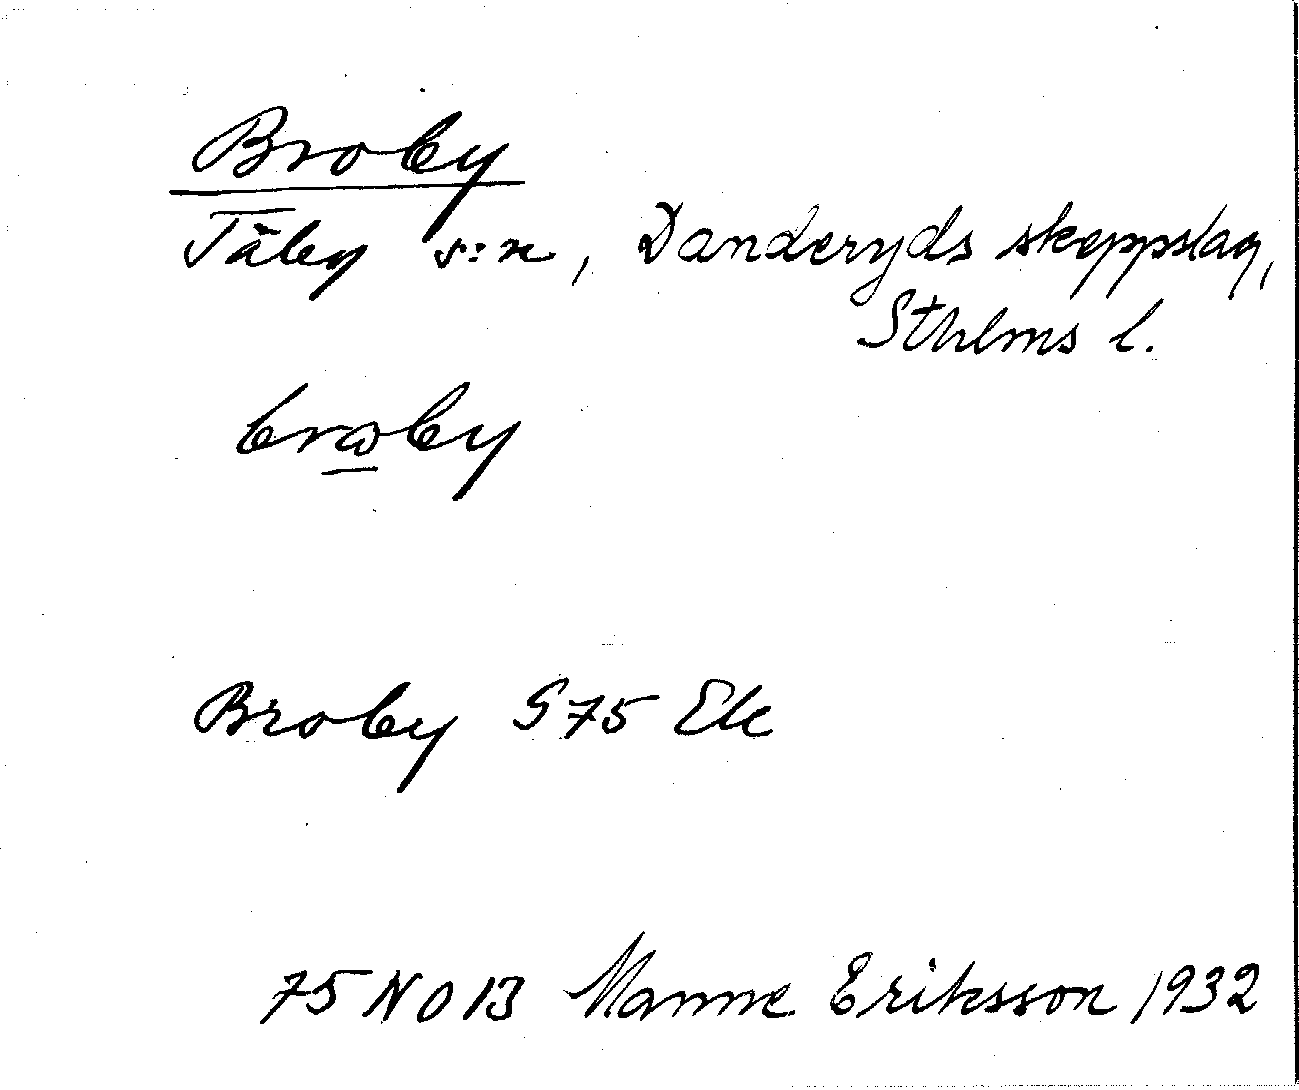 Broby
Täby s:n, Danderyds skeppslag,
Sthlms l.
broby
Broby S 75 Ek
75 NO 13 Manne Eriksson 1932